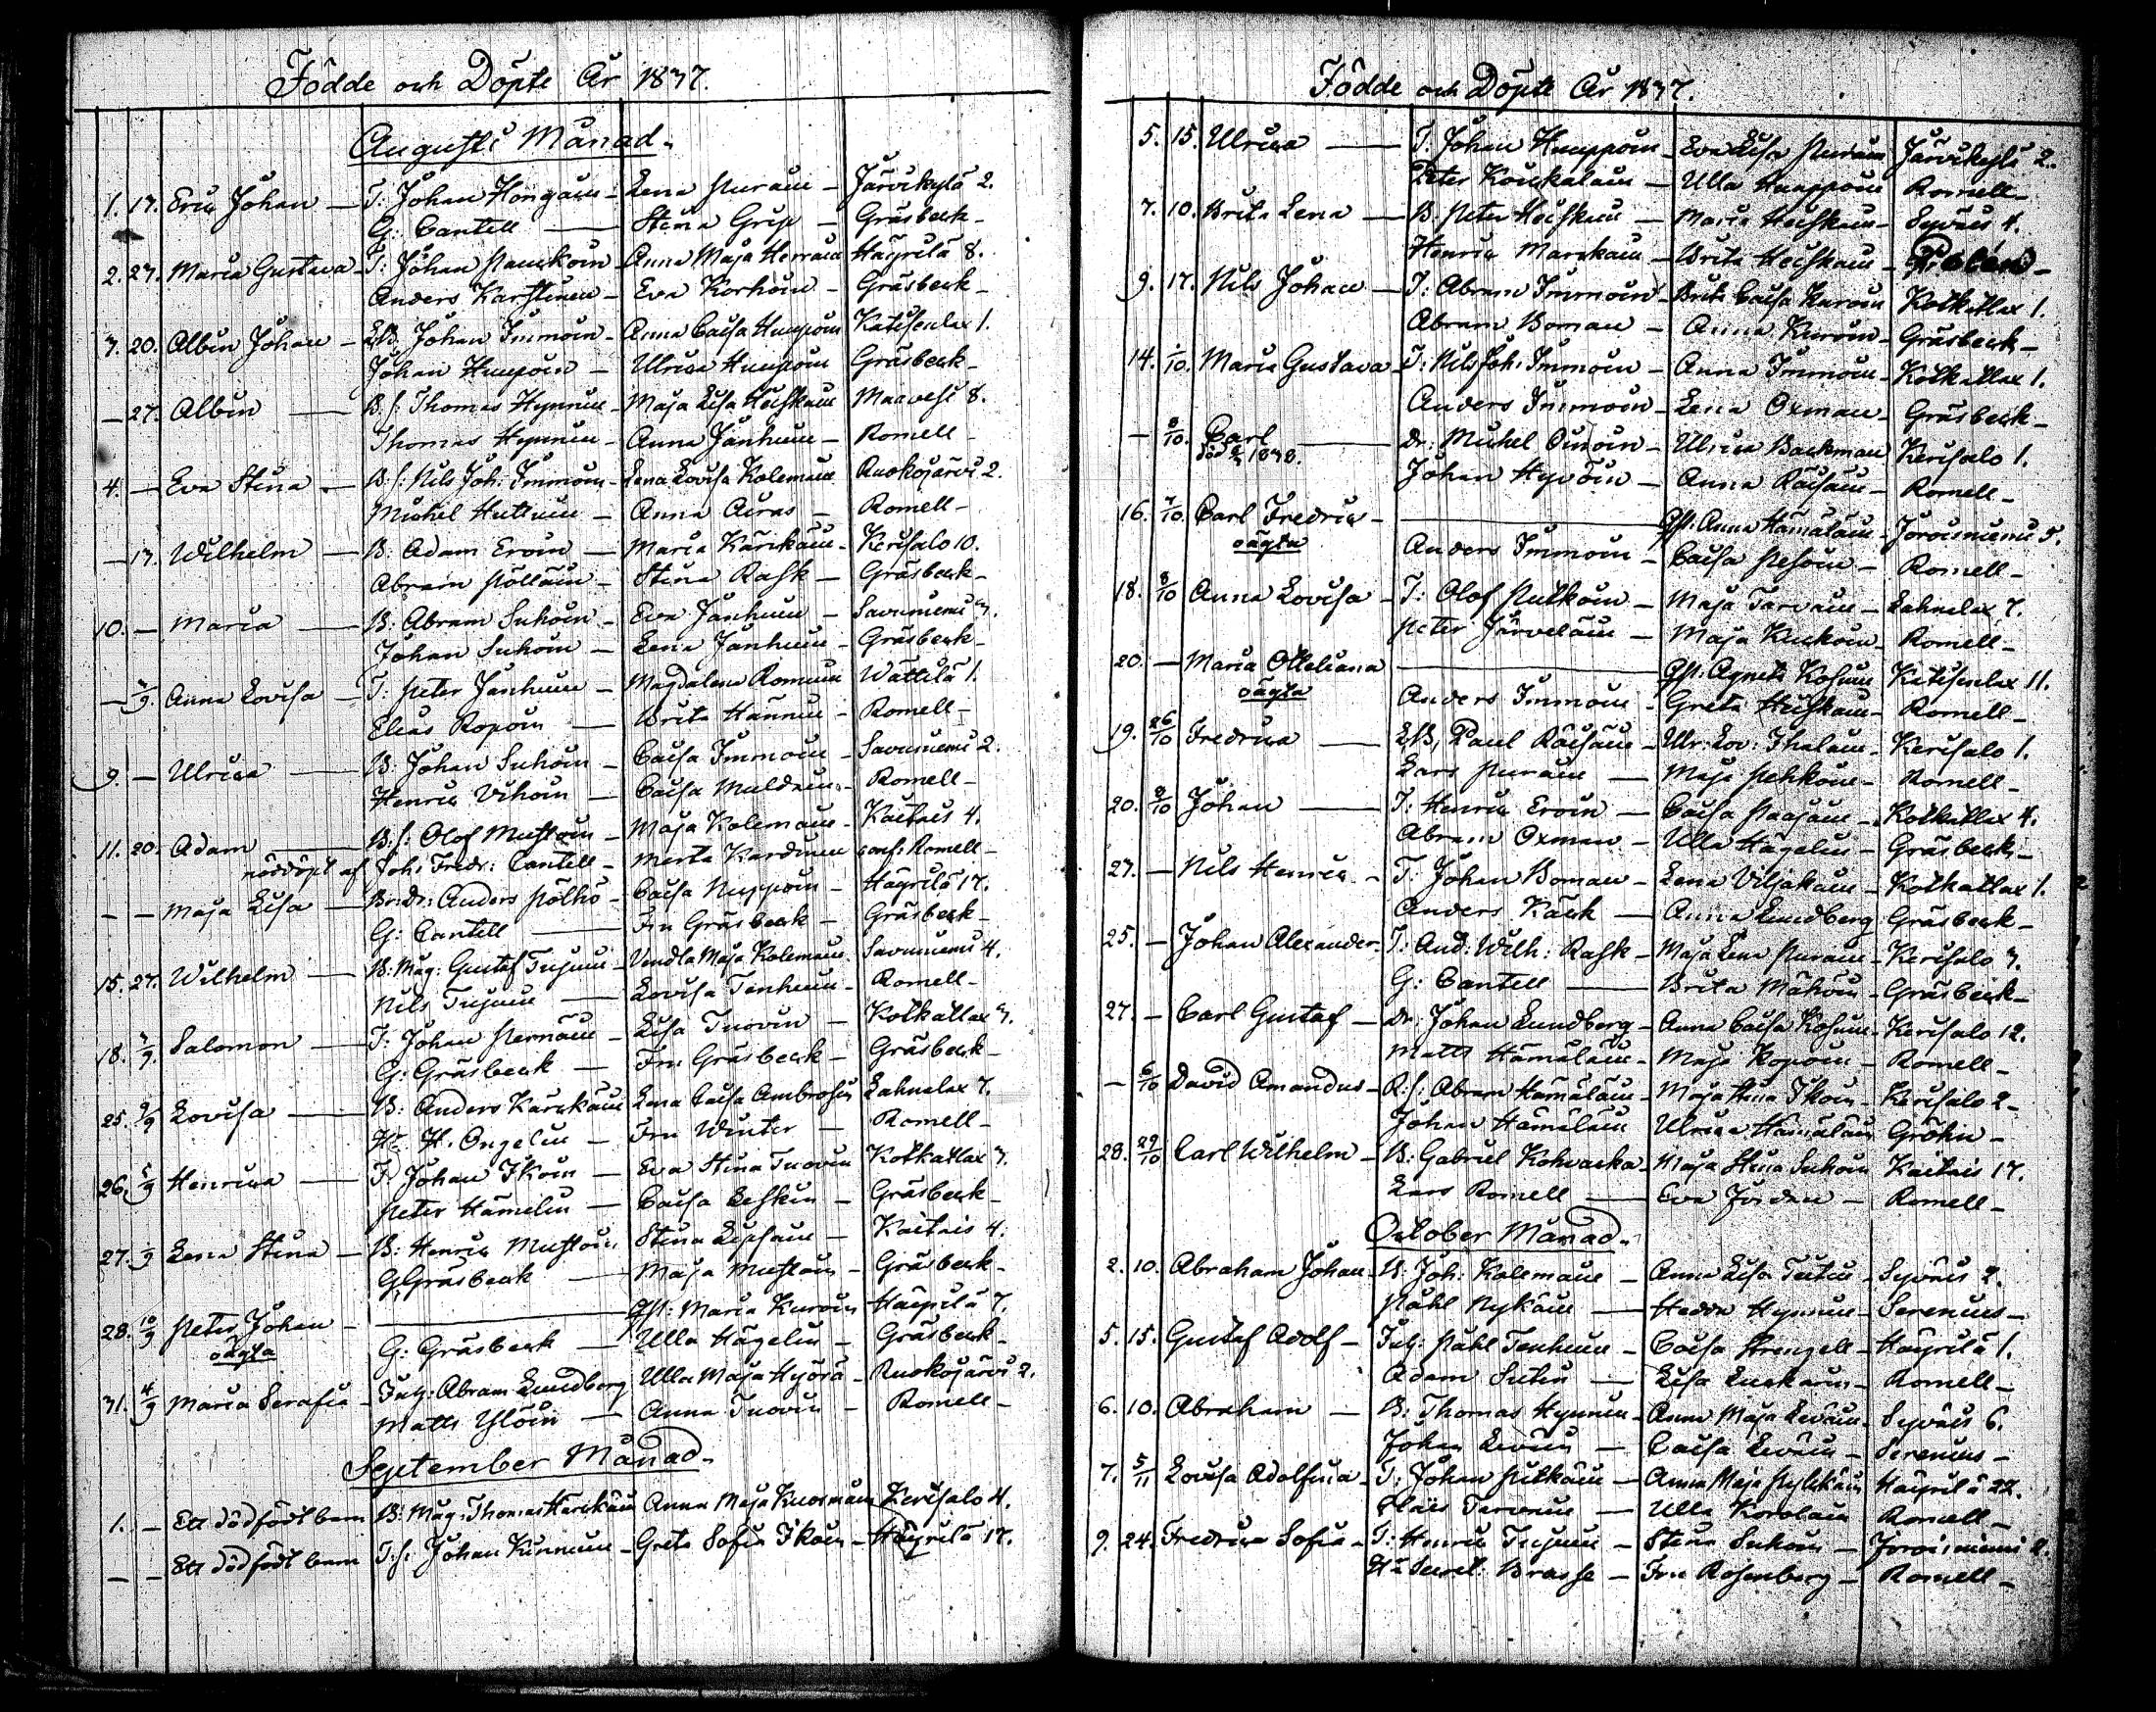 Födde och Döpte År 1837.
Augusti Månad.
1. 17. Eric Johan — T: Johan Hongain — Lena Purain — Järvikylä 2.
G: Cantell — Stina Grip — Gräsbeck —
2. 27. Maria Gustava — T: Johan Paukoin — Anna Maja Herrain Häyrilä 8.
Anders Karstinen — Eva Korhoin — Gräsbeck —
3. 20. Albin Johan — Johan Immoin — Anna Caisa Huupoin Katisenlax 1.
Johan Huupoin — Ulrica Huupoin Gräsbeck —
— 27. Albin — B.s: Thomas Hynnin — Maja Lisa Heiskain Maavesi 8.
Thomas Hynnin — Anna Janhuin — Romell —
4. — Eva Stina — B.s: Nils Joh: Immoin — Lena Lovisa Kolemain Ruokojärvi 2.
Michel Huttuin — Anna Airas — Romell —
— 13. Wilhelm — B. Adam Eroin — Maria Kärckäin — Kerisalo 10.
Abram Pölläin — Stina Rask — Gräsbeck —
10. — Maria — B. Abram Suhoin — Eva Janhuin — Savuniemi 3.
Johan Suhoin — Lena Janhuin — Gräsbeck —
— 3/9. Anna Lovisa — T: Peter Janhuin — Magdalena Romuin Wättilä 1.
Elias Ropoin — Brita Hännin — Romell —
9. — Ulrica — B: Johan Suhoin — Caisa Immoin — Savuniemi 2.
Henric Vihoin — Caisa Muldain — Romell —
11. 20. Adam — B.s: Olof Mustoin — Maja Kolemain — Kaitais 4.
nöddöpt af Joh: Fredr: Cantell — Merta Kardinen conf: Romell —
— — Maja Lisa — Br: Dr: Anders Pölhö — Caisa Nuppoin — Häyrilä 17.
G: Cantell — Fru Gräsbeck — Gräsbeck —
15. 27. Wilhelm — B: Måg: Gustaf Tujuin — Vendla Maja Kolemain Savuniemi 4.
Nils Tujuin — Lovisa Tenhuin — Romell —
18. 3/9. Salomon — T: Johan Pernäin — Lisa Tuovin — Kotkatlax 3.
G: Gräsbeck — Fru Gräsbeck — Gräsbeck —
25. 3/9 Lovisa — B: Anders Kärckäin Lena Caisa Ambrosin Lahnalax 7.
Hr H. Ongelin — Fru Winter — Romell —
26. 5/9 Henrica — T: Johan Ikoin — Eva Stina Tuovin Kotkatlax 3.
Peter Hämelin — Caisa Leskin — Gräsbeck —
27. 3/9 Lena Stina — B: Henric Mustoin Stina Lipsain — Kaitais 4.
G: Gräsbeck — Maja Mustoin — Gräsbeck —
28. 10/9 Peter Johan — — Qp: Maria Kuroin Häyrilä 7.
oägta G: Gräsbeck — Ulla Hägelin — Gräsbeck —
31. 4/9 Maria Serafia — Inh: Abram Lundberg Ulla Maja Hyörä — Ruokojärvi 2.
Matts Ylöin — Anna Tuovin — Romell —
September Månad.
1. — Ett dödfödt barn B: Måg: Thomas Kärckäin Anna Maja Kuosmain Kerisalo 4.
— — Ett dödfödt barn T.s: Johan Kinnuin — Greta Sofia Ikoin — Häyrilä 17.
Födde och Döpte År 1837.
5. 15. Ulrica — T. Johan Huuppoin — Eva Lisa Purain Järvikylä 2.
Peter Koukalain — Ulla Huuppoin Romell —
7. 10. Brita Lena — B. Peter Heiskain — Maria Heiskain — Syväis 4.
Henric Marckain — Brita Heiskain —
9. 17. Nils Johan — T: Abram Immoin — Brita Caisa Kuroin Kotkatlax 1.
Abram Boman — Anna Kuroin — Gräsbeck —
14. 1/10. Maria Gustava — T: Nils Joh: Immoin — Anna Immoin — Kotkatlax 1.
Anders Immoin — Lena Oxman — Gräsbeck —
— 8/10. Carl — Dr: Michel Oinoin — Ulrica Backman Kerisalo 1.
död 1838. Johan Hyvöin — Anna Räisäin — Romell —
16. 7/10. Carl Fredric — — Qp: Anna Hämäläin — Joroisniemi 5.
oägta Anders Immoin — Caisa Pesoin — Romell —
18. 8/10 Anna Lovisa — T: Olof Putkoin — Maja Tarvain — Lahnalax 7.
Peter Järveläin — Maja Kuckoin — Romell —
20. — Maria Otteliana — Qp: Agneta Kosuin Katisenlax 11.
oägta Anders Immoin — Greta Heiskain — Romell —
19. 26/10 Fredrica — Paul Räisäin — Ulr: Lov: Thalain — Kerisalo 1.
Lars Purain — Maja Pekkoin — Romell —
20. 8/10 Johan — T: Henric Eroin — Caisa Paasain — Kotkatlax 4.
Abram Oxman — Ulla Hägelin — Gräsbeck —
27. — Nils Henric — T: Johan Boman — Lena Viljakain — Kotkatlax 1.
Anders Käck — Anna Lundberg Gräsbeck —
25. — Johan Alexander — T: And: Wilh: Rask — Maja Lena Purain — Kerisalo 3.
G: Cantell — Brita Mähoin — Gräsbeck —
27. — Carl Gustaf — Dr: Johan Lundberg — Anna Caisa Kosuin — Kerisalo 12.
Matts Hämäläin — Maja Kopoin — Romell —
— 6/10 David Amandus — R.s: Abram Hämäläin — Maja Stina Ikoin — Kerisalo 2 —
Johan Hämäläin Ulrica Hämäläin Gröhn —
28. 29/10 Carl Wilhelm — B: Gabriel Kohvacka — Maja Stina Suhoin Kaitais 17.
Lars Romell — Eva Jordan — Romell —
October Månad.
2. 10. Abraham Johan — B. Joh: Kolemain — Anna Lisa Teitin — Syväis 2.
Påhl Nykäin — Hedda Hynnin — Serenius —
5. 15. Gustaf Adolf — Inh: Påhl Tenhuin — Caisa Strengell — Häyrilä 1.
Adam Sutin — Lisa Luckarin — Romell —
6. 10. Abraham — B: Thomas Hynnin — Anna Maja Leväin — Syväis 6.
Johan Leväin — Caisa Leväin — Serenius —
7. 5/11 Lovisa Adolfina — T: Johan Pitkäin — Anna Maja Pylkkäin Häyrilä 22.
Claes Tarvain — Ulla Korolain Romell —
9. 24. Fredrica Sofia — T: Henric Tujuin — Stina Suhoin — Joroisniemi 2.
Hr Secret: Brasse — Fru Rosenberg — Romell —